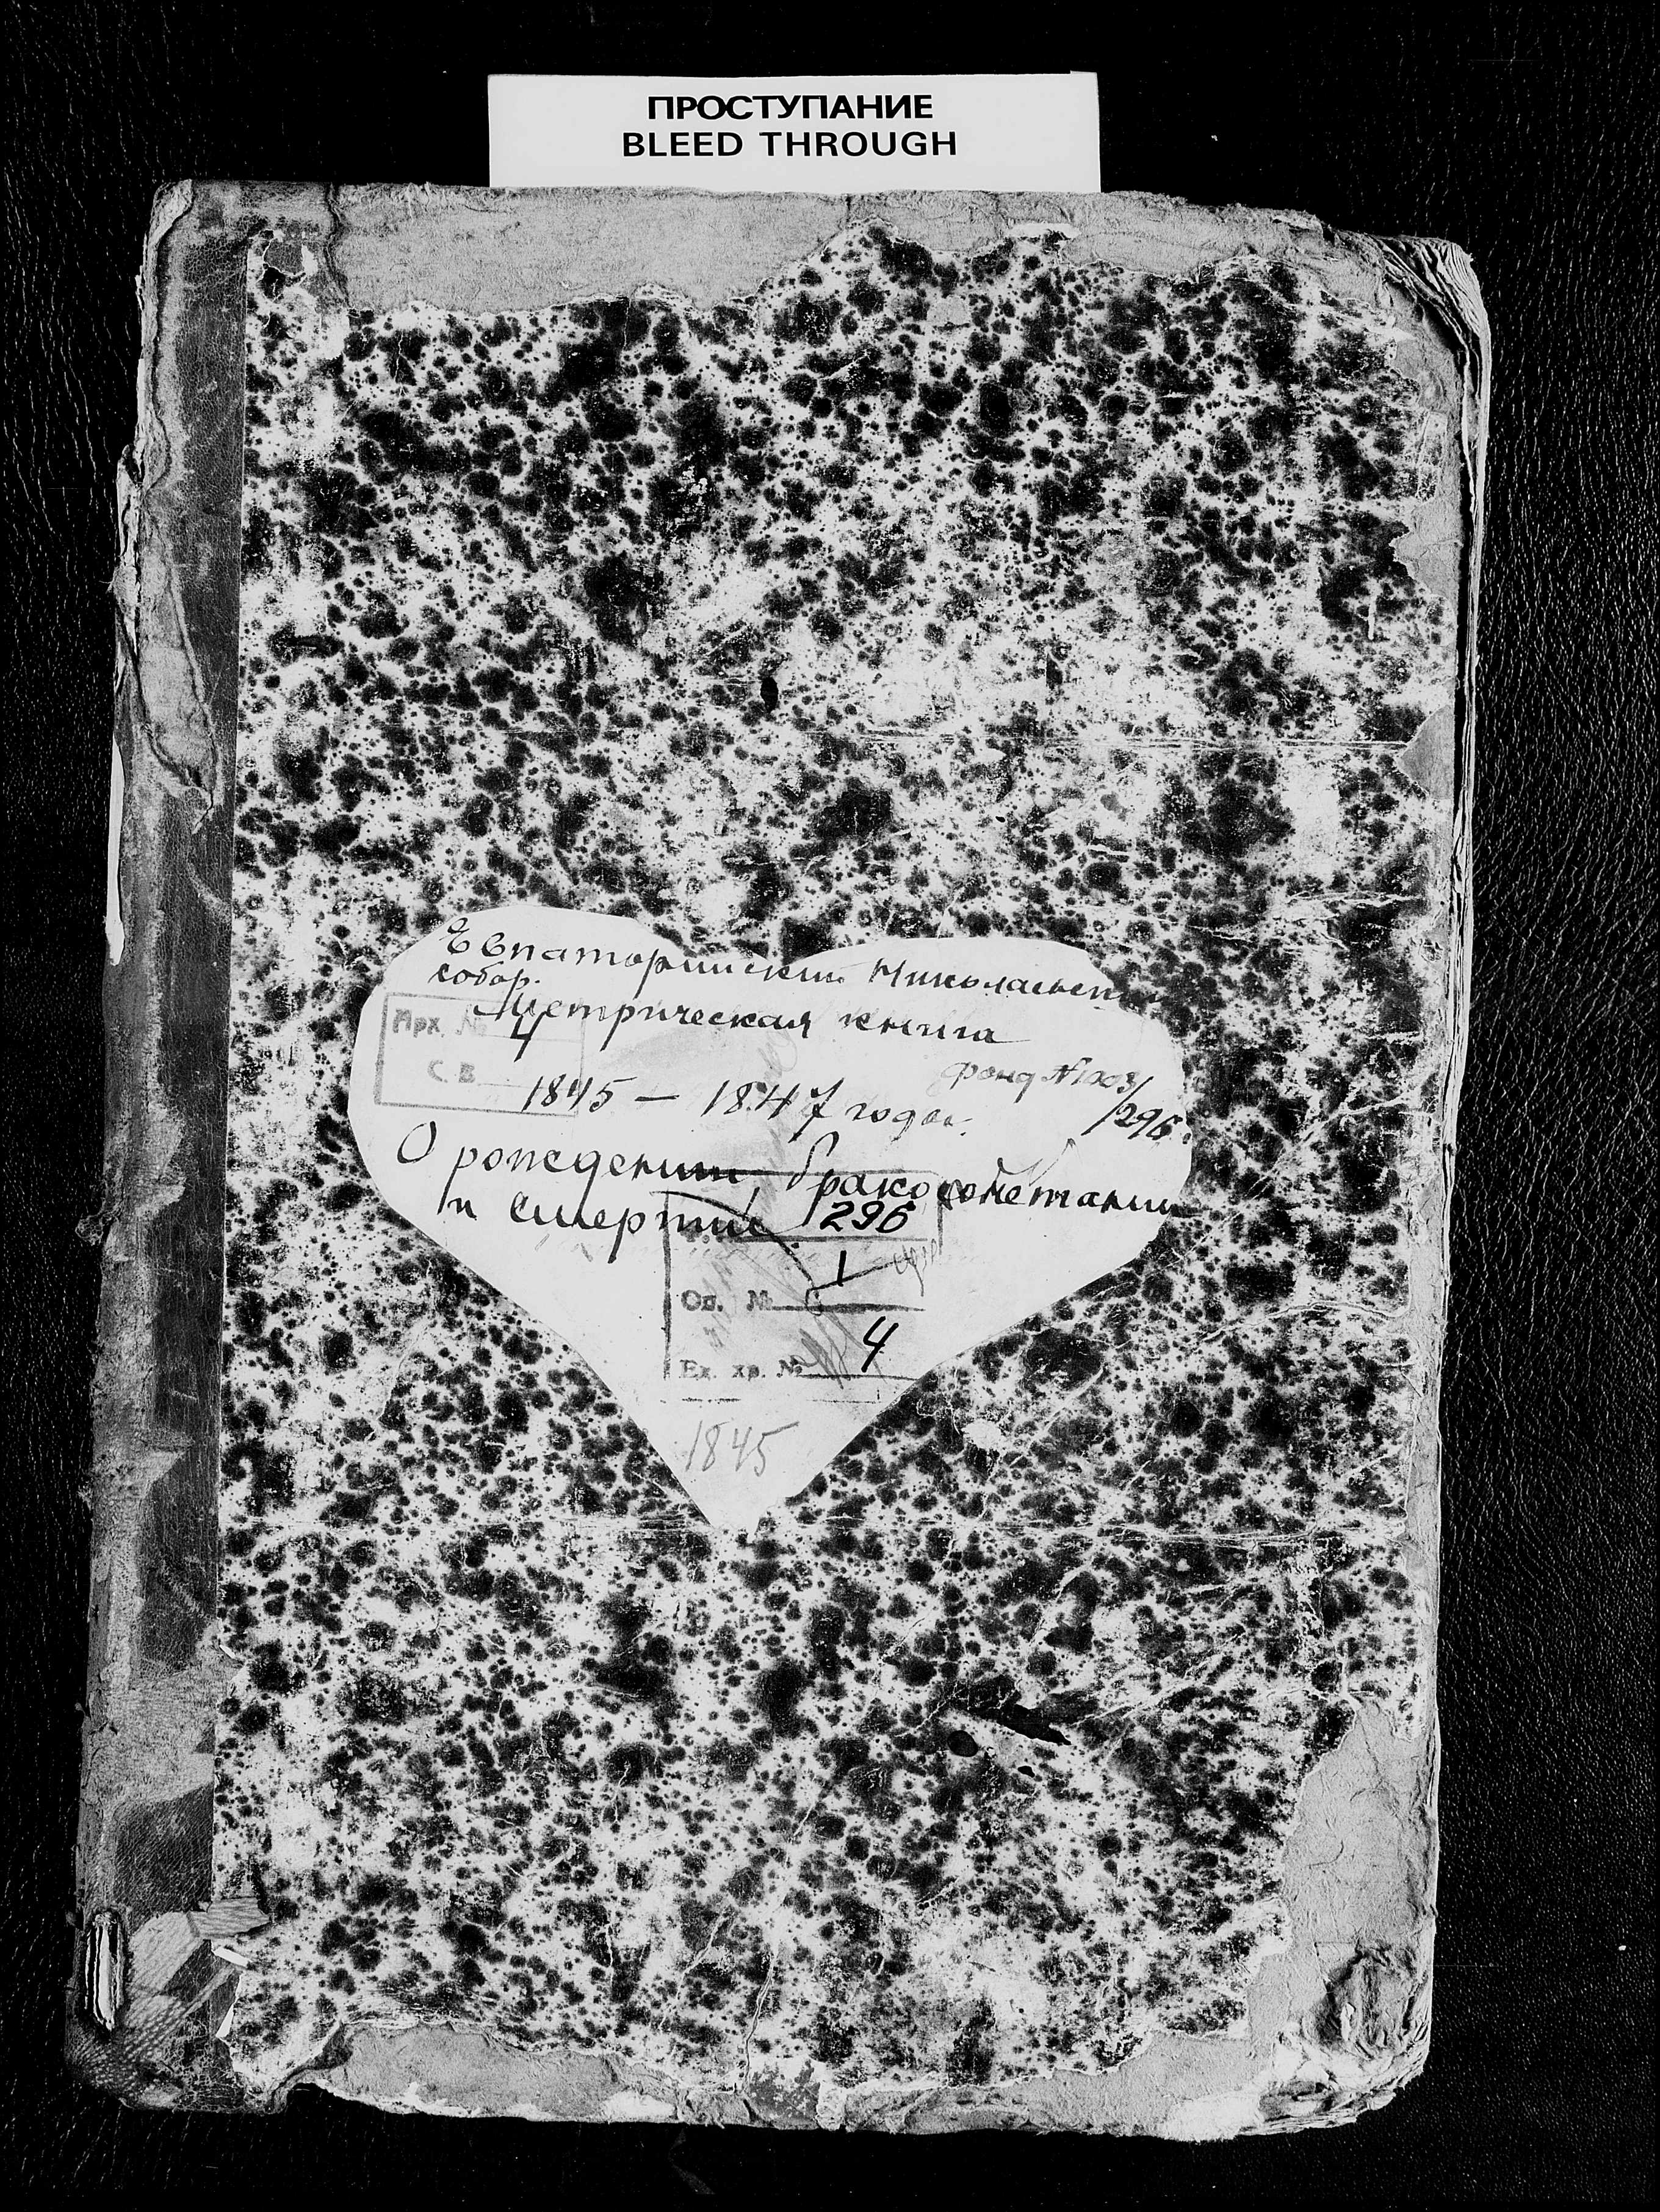 ПРОСТУПАНИЕ
BLEED THROUGH
Евпаторийский Николаевский
собор.
Метрическая книга
Арх. № 4
С. В.
1845 — 1847 года.
Фонд № 1003/
/296.
О рождении, бракосочетании
и смерти
296
1
Оп. №
4
Ех. хр. №
1845